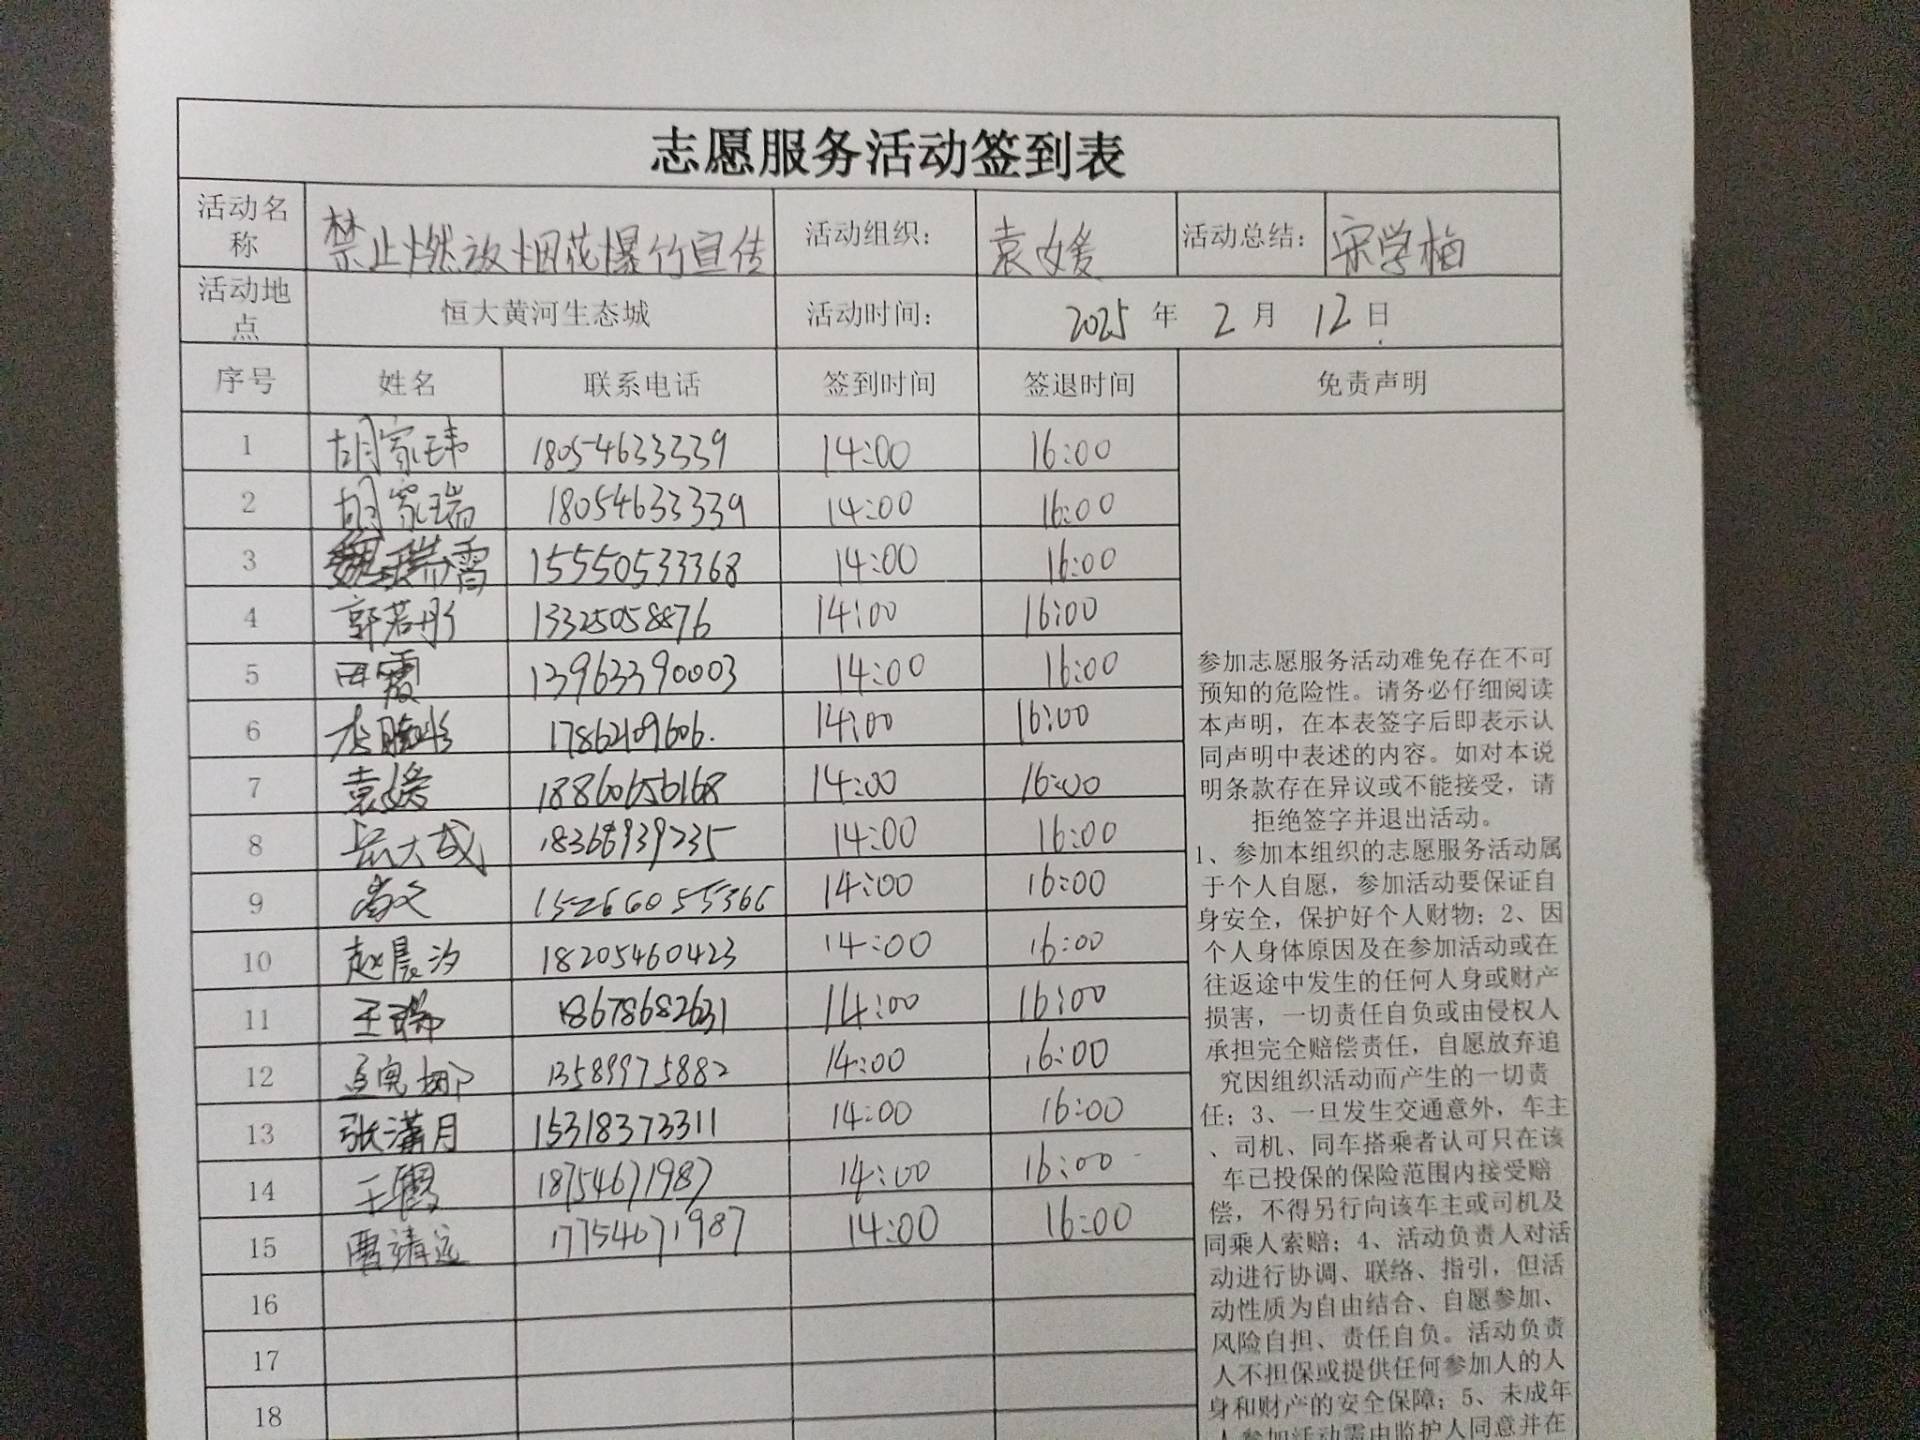 志愿服务活动签到表
活动名称 禁止燃放烟花爆竹宣传 活动组织： 袁媛 活动总结： 宋学梅
活动地点 恒大黄河生态城 活动时间： 2025 年 2 月 12 日
序号 姓名 联系电话 签到时间 签退时间 免责声明
1 胡家玮 18054633339 14:00 16:00
2 胡家瑞 18054633339 14:00 16:00
3 魏瑞霄 15550533368 14:00 16:00
4 郭若彤 13325058876 14:00 16:00
5 田霞 13963390003 14:00 16:00
6 17862109606. 14:00 16:00
7 袁媛 18860656168 14:00 16:00
8 岳大成 18368939235 14:00 16:00
9 15266055366 14:00 16:00
10 赵晨汐 18205460423 14:00 16:00
11 王瑞 18678682631 14:00 16:00
12 13589975882 14:00 16:00
13 张潇月 15318373311 14:00 16:00
14 王霞 18754671987 14:00 16:00
15 曹靖远 17754671987 14:00 16:00
16
17
18
参加志愿服务活动难免存在不可
预知的危险性。请务必仔细阅读
本声明，在本表签字后即表示认
同声明中表述的内容。如对本说
明条款存在异议或不能接受，请
拒绝签字并退出活动。
1、参加本组织的志愿服务活动属
于个人自愿，参加活动要保证自
身安全，保护好个人财物；2、因
个人身体原因及在参加活动或在
往返途中发生的任何人身或财产
损害，一切责任自负或由侵权人
承担完全赔偿责任，自愿放弃追
究因组织活动而产生的一切责
任；3、一旦发生交通意外，车主
、司机、同车搭乘者认可只在该
车已投保的保险范围内接受赔
偿，不得另行向该车主或司机及
同乘人索赔；4、活动负责人对活
动进行协调、联络、指引，但活
动性质为自由结合、自愿参加、
风险自担、责任自负。活动负责
人不担保或提供任何参加人的人
身和财产的安全保障；5、未成年
人参加活动需由监护人同意并在